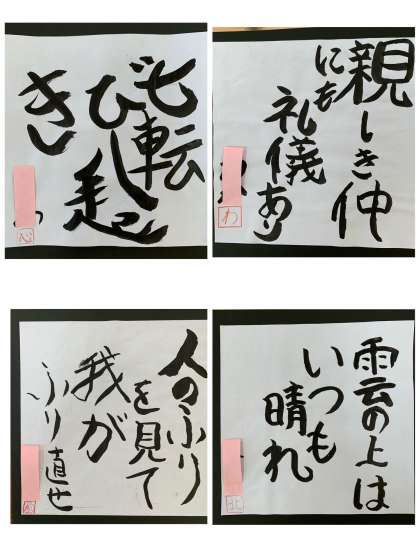 七転
び八起
き
心
親しき仲
にも
礼儀あり
わ
人のふり
を見て
我が
ふり直せ
雲の上は
いつも
晴れ